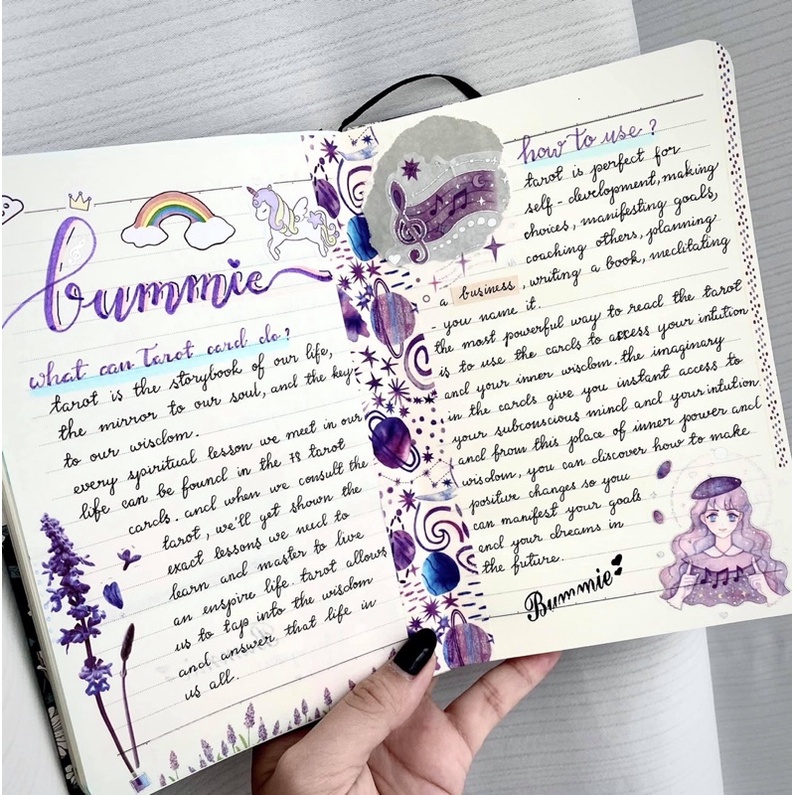 bummie
what can Tarot card do?
tarot is the storybook of our life,
the mirror to our soul, and the key
to our wisdom.
every spiritual lesson we meet in our
life can be found in the 78 tarot
cards. and when we consult the
tarot, we'll get shown the
exact lessons we need to
learn and master to live
an enspire life. tarot allows
us to tap into the wisdom
and answer that life in
us all.
how to use?
tarot is perfect for
self-development, making
choices, manifesting goals,
coaching others, planning
a business, writing a book, meditating
- you name it.
the most powerful way to read the tarot
is to use the cards to access your intution
and your inner wisdom. the imaginary
in the cards give you instant access to
your subconscious mind and your intution.
and from this place of inner power and
wisdom, you can discover how to make
positive changes so you
can manifest your goals
and your dreams in
the future.
Bummie